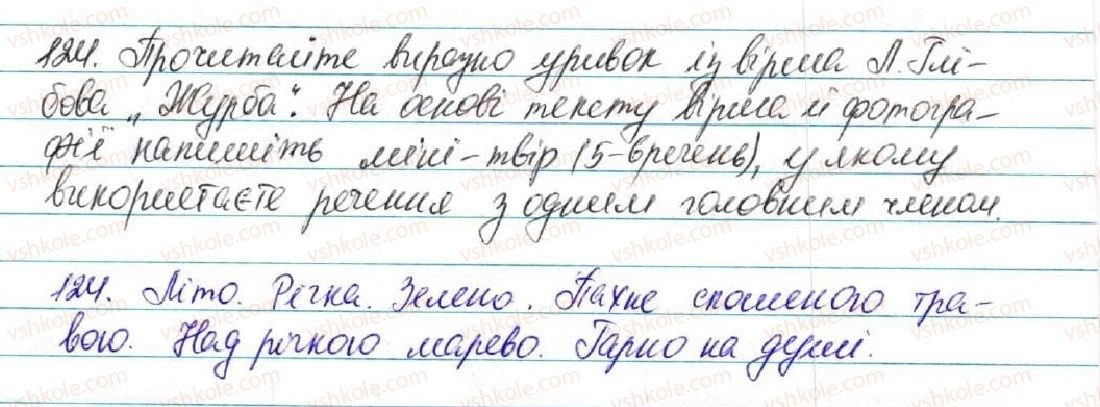 124. Прочитайте виразно уривок із вірша Л. Глі-
бова „Журба". На основі тексту вірша й фотогра-
фії напишіть міні-твір (5-6 речень), у якому
використаєте речення з одним головним членом.
124. Літо. Річка. Зелено. Пахне скошеною тра-
вою. Над річкою марево. Гарно на душі.
vshkole.com